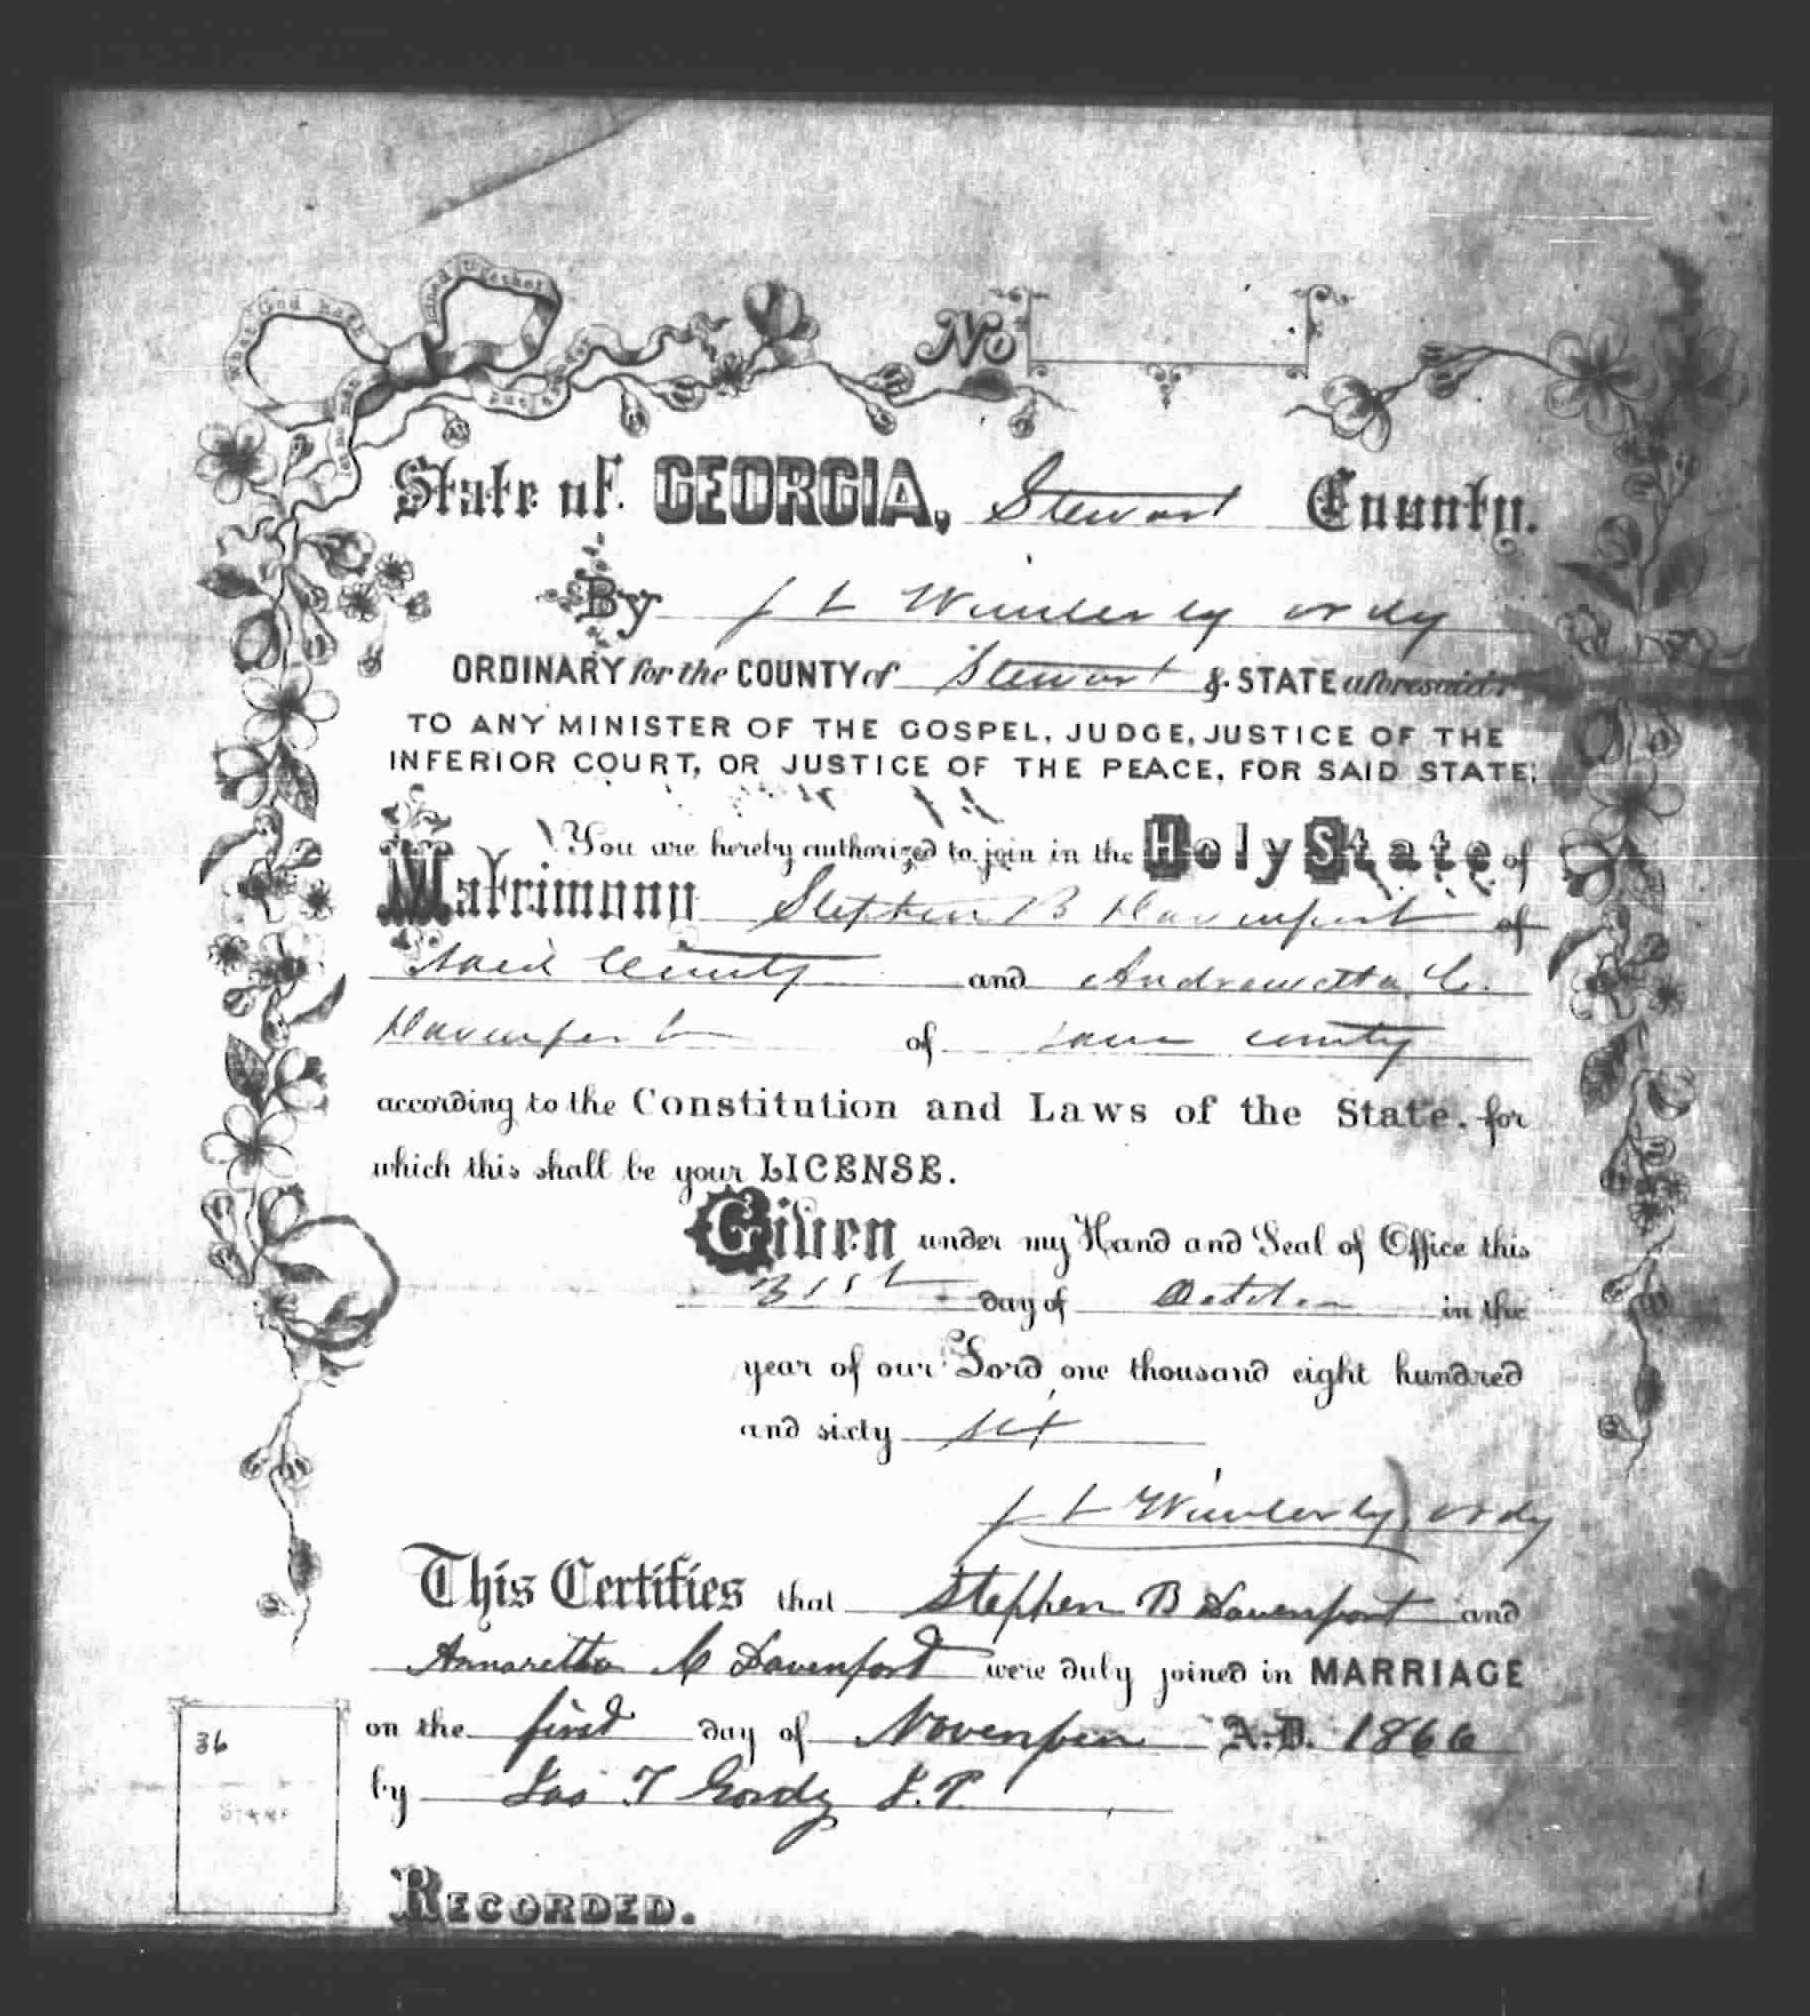 What God hath joined together let no man put asunder
No
State of GEORGIA, Stewart County.
By J L Wimberly Ordy
ORDINARY for the COUNTY of Stewart & STATE aforesaid:
TO ANY MINISTER OF THE GOSPEL, JUDGE, JUSTICE OF THE
INFERIOR COURT, OR JUSTICE OF THE PEACE, FOR SAID STATE:
You are hereby authorized to join in the Holy State of
Matrimony Stephen B Davenport of
Said County and Andrewetta C.
Davenport of same county
according to the Constitution and Laws of the State, for
which this shall be your LICENSE.
Given under my Hand and Seal of Office this
31st day of October in the
year of our Lord one thousand eight hundred
and sixty six
J L Wimberly Ordy
This Certifies that Stephen B Davenport and
Annaretta C Davenford were duly joined in MARRIAGE
on the first day of Novenber A.D. 1866
by Jas T Gordy J.P.
36
Stamp
RECORDED.